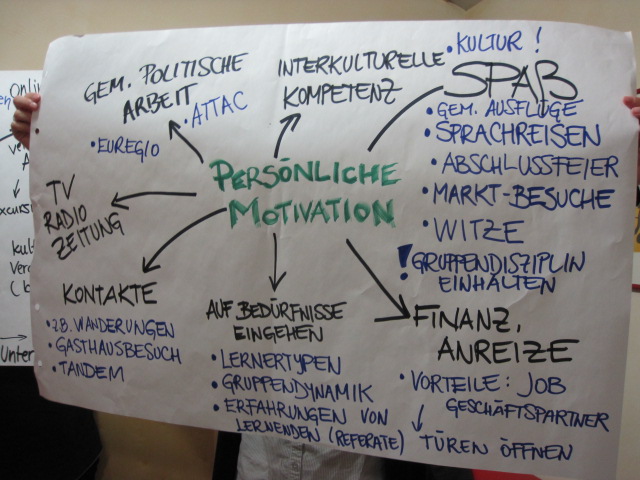 PERSÖNLICHE
MOTIVATION
GEM. POLITISCHE
ARBEIT
• ATTAC
• EUREGIO
INTERKULTURELLE
KOMPETENZ
• KULTUR !
SPAß
• GEM. AUSFLÜGE
• SPRACHREISEN
• ABSCHLUSSFEIER
• MARKT-BESUCHE
• WITZE
! GRUPPENDISZIPLIN
EINHALTEN
TV
RADIO
ZEITUNG
KONTAKTE
• ZB. WANDERUNGEN
• GASTHAUSBESUCH
• TANDEM
AUF BEDÜRFNISSE
EINGEHEN
• LERNERTYPEN
• GRUPPENDYNAMIK
• ERFAHRUNGEN VON
LERNENDEN (REFERATE)
FINANZ.
ANREIZE
• VORTEILE: JOB
GESCHÄFTSPARTNER
↓ TÜREN ÖFFNEN
Onlin
xcursi
kult
Vera
Unter